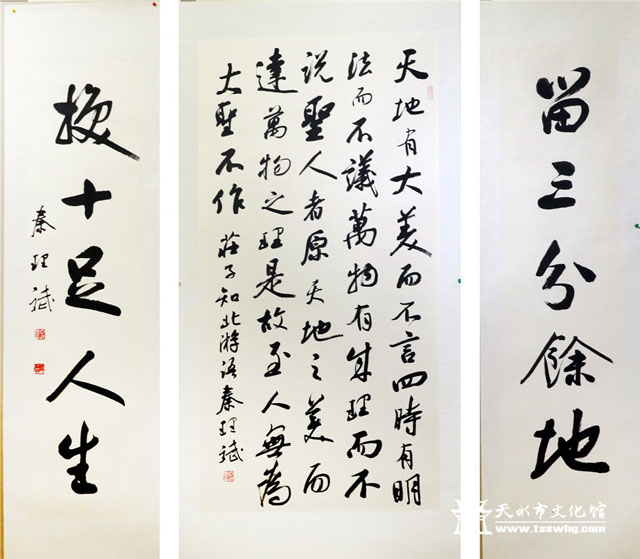 留三分餘地
天地有大美而不言四時有明
法而不議萬物有成理而不
說聖人者原天地之美而
達萬物之理是故至人無為
大聖不作 莊子知北游语 秦理斌
换十足人生
秦理斌
天水市文化馆
www.tsswhg.com